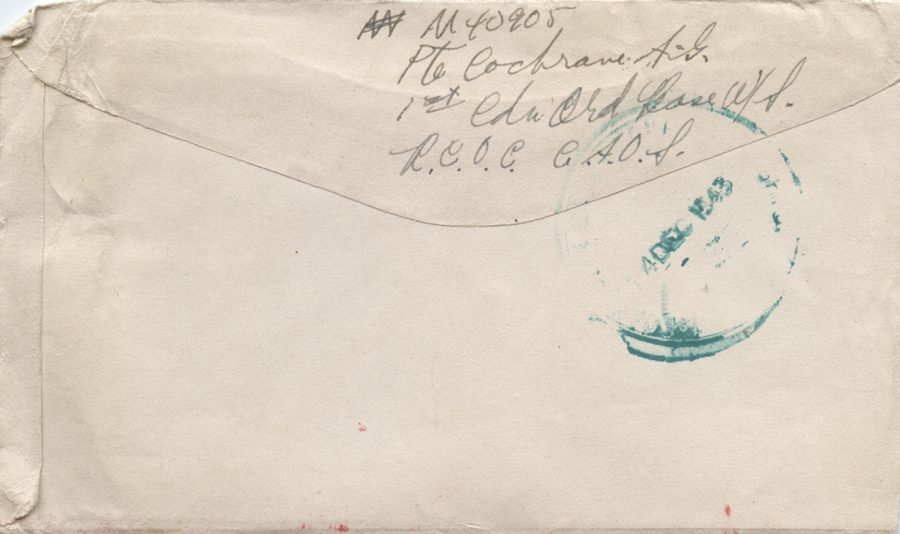 M 40905
Pte Cochrane A.G.
1st Cdn Ord Base W/S.
R.C.O.C. C.A.O.S.
4 DEC 1943